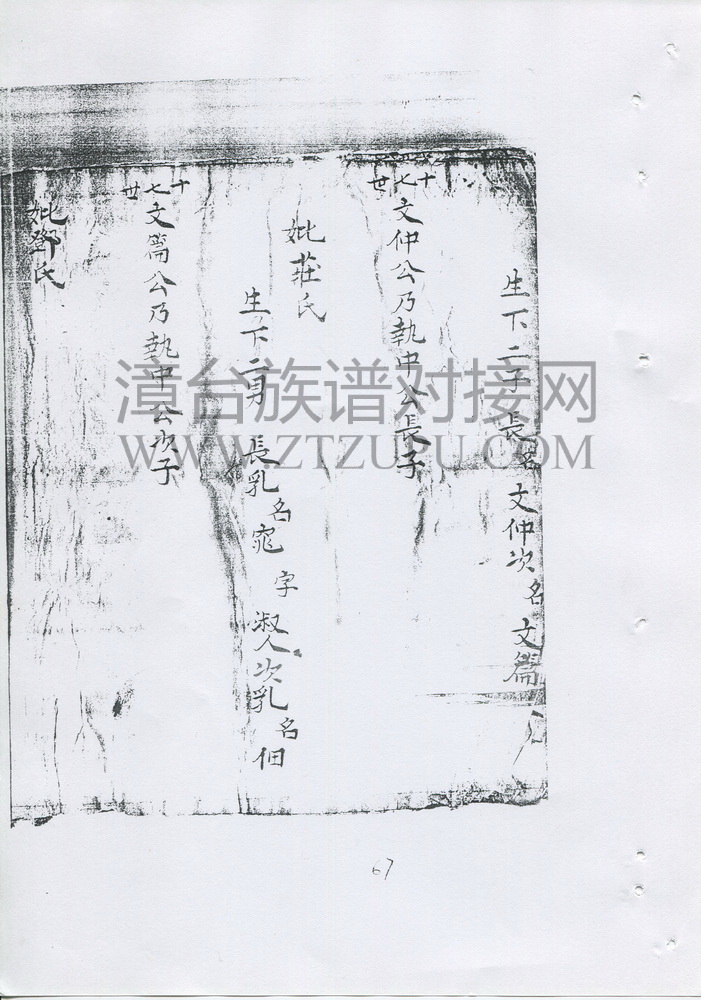 生下二子長名文仲次名文篇
十七世文仲公乃執中公長子
妣莊氏
生下二男長乳名窕字淑人次乳名佃
十七世文篇公乃執中公次子
妣鄧氏
漳台族谱对接网
WWW.ZTZUPU.COM
67